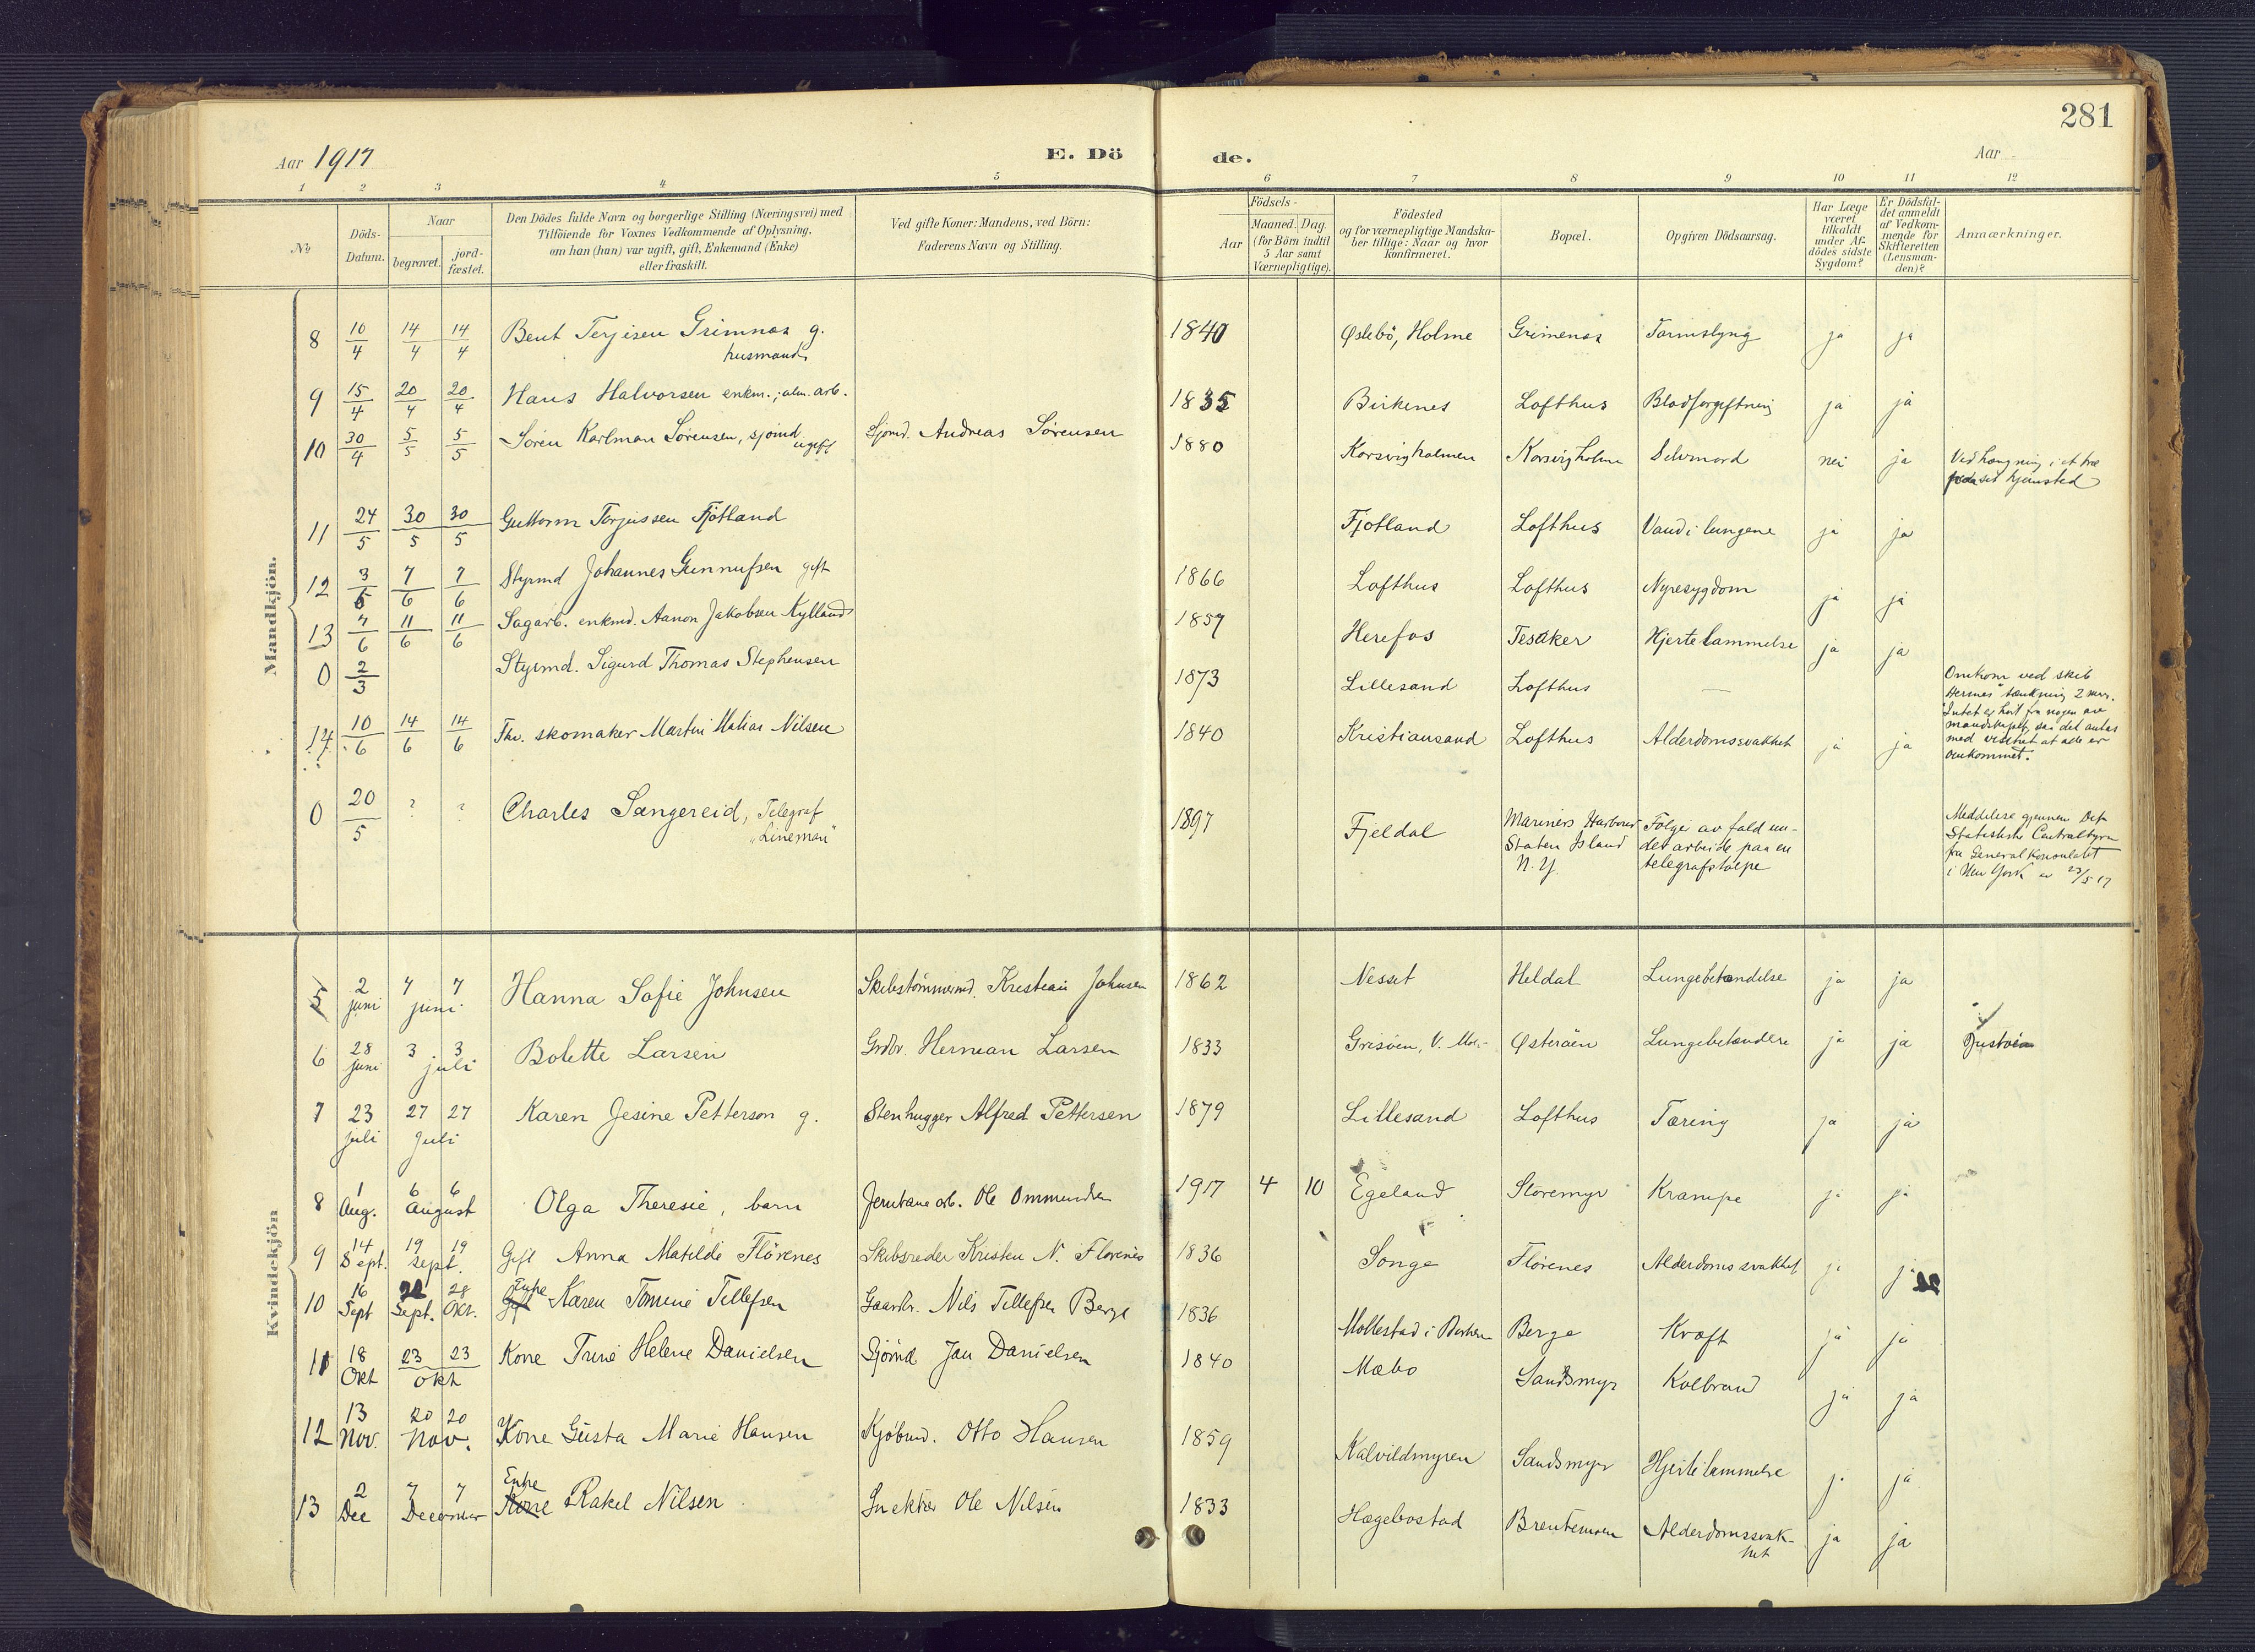 281
Aar 1917 E. Dö de. Aar
1 2 3 4 5 6 7 8 9 10 11 12
№
Döds-Datum.
Naar
begravet. jord-fæstet.
Den Dödes fulde Navn og borgerlige Stilling (Næringsvei) med
Tilföiende for Voxnes Vedkommende af Oplysning,
om han (hun) var ugift, gift, Enkemand (Enke)
eller fraskilt.
Ved gifte Koner: Mandens, ved Börn:
Faderens Navn og Stilling.
Födsels-
Aar Maaned. Dag.
(for Börn indtil
5 Aar samt
Værnepligtige).
Födested
og for værnepligtige Mandska-
ber tillige: Naar og hvor
konfirmeret.
Bopæl.
Opgiven Dödsaarsag.
Har Læge
været
tilkaldt
under Af-
dödes sidste
Sygdom?
Er Dödsfal-
det anmeldt
af Vedkom-
mende for
Skifteretten
(Lensman-
den)?
Anmærkninger.
Mandkjön.
8 10/4 14/4 14/4 Bent Terjesen Grimnæs g. 1840 Øslebö, Holme Grimenæs Tarmslyng ja ja
husmand
9 15/4 20/4 20/4 Hans Halvorsen enkm.; alm. arb. 1835 Birkenes Lofthus Blodforgiftning ja ja
10 30/4 5/5 5/5 Sören Karlman Sörensen, sjömd ugift Sjömd. Andreas Sörensen 1880 Korsvigholmen Korsvigholm Selvmord nei ja Ved hængning i et træ
sit hjemsted
11 24/5 30/5 30/5 Guttorm Torjussen Fjotland Fjotland Lofthus Vand i lungene ja ja
12 3/6 7/6 7/6 Styrmd Johannes Gunnufsen gift 1866 Lofthus Lofthus Nyresygdom ja ja
13 7/6 11/6 11/6 Sagarb. enkmd. Aanon Jakobsen Kylland 1859 Herefos Tesaker Hjertelammelse ja ja
0 2/3 Styrmd. Sigurd Thomas Stephensen 1873 Lillesand Lofthus — Omkom ved skib
"Hermes" sænkning 2 mars.
Intet er hört fra nogen av
mandskapet, saa det antas
med visshet at alle er
omkommet.
14 10/6 14/6 14/6 Fhv. skomaker Martin Matias Nilsen 1840 Kristiansand Lofthus Alderdomssvakhet ja ja
0 20/5 ? ? Charles Sangereid, Telegraf 1897 Fjeldal Mariners Harbour Fölge av fald un- Meddelelse gjennem Det
"Lineman" Staten Island der arbeide paa en Statistiske Centralbyrå
N.Y. telegrafstolpe fra Generalkonsulatet
i New York av 23/5 17
Kvindekjön
5 2 juni 7 7 juni Hanna Sofie Johnsen Skibstömmermd. Kristian Johnsen 1862 Nesset Heldal Lungebetændelse ja ja
6 28 juni 3 3 juli Bolette Larsen Grdbr. Herman Larsen 1833 Grisöen, V. Mol- Østeröen Lungebetændelse ja ja i Justöen
7 23 juli 27 27 juli Karen Jesine Petterson g. Stenhugger Alfred Pettersen 1879 Lillesand Lofthus Tæring ja ja
8 1 Aug. 6 6 August Olga Theresie, barn Jernbanearb. Ole Ommundsen 1917 4 10 Egeland Storemyr Krampe ja ja
9 14 Sept. 19 19 Sept. Gift Anna Matilde Flörenes Skibsreder Kristen N. Florenes 1836 Songe Flörenes Alderdomssvakhet ja ja
10 16 Sept 22 Sept. 28 Okt. Enke Karen Tomine Tellefsen Gaardbr. Nils Tellefsen Berge 1836 Mollestad i Birkenes Berge Kræft ja ja
11 18 Okt 23 23 okt Kone Trine Helene Danielsen Sjömd Jan Danielsen 1840 Mæbo Sandsmyr Kolbrand ja ja
12 13 Nov. 20 20 Nov. Kone Gusta Marie Hansen Kjöbmd. Otto Hansen 1859 Kalvildmyren Sandsmyr Hjertelammelse ja ja
13 2 Dec 7 7 December Enke Rakel Nilsen Snekker Ole Nilsen 1833 Hægebostad Brentemoen Alderdomssvak-
het ja ja